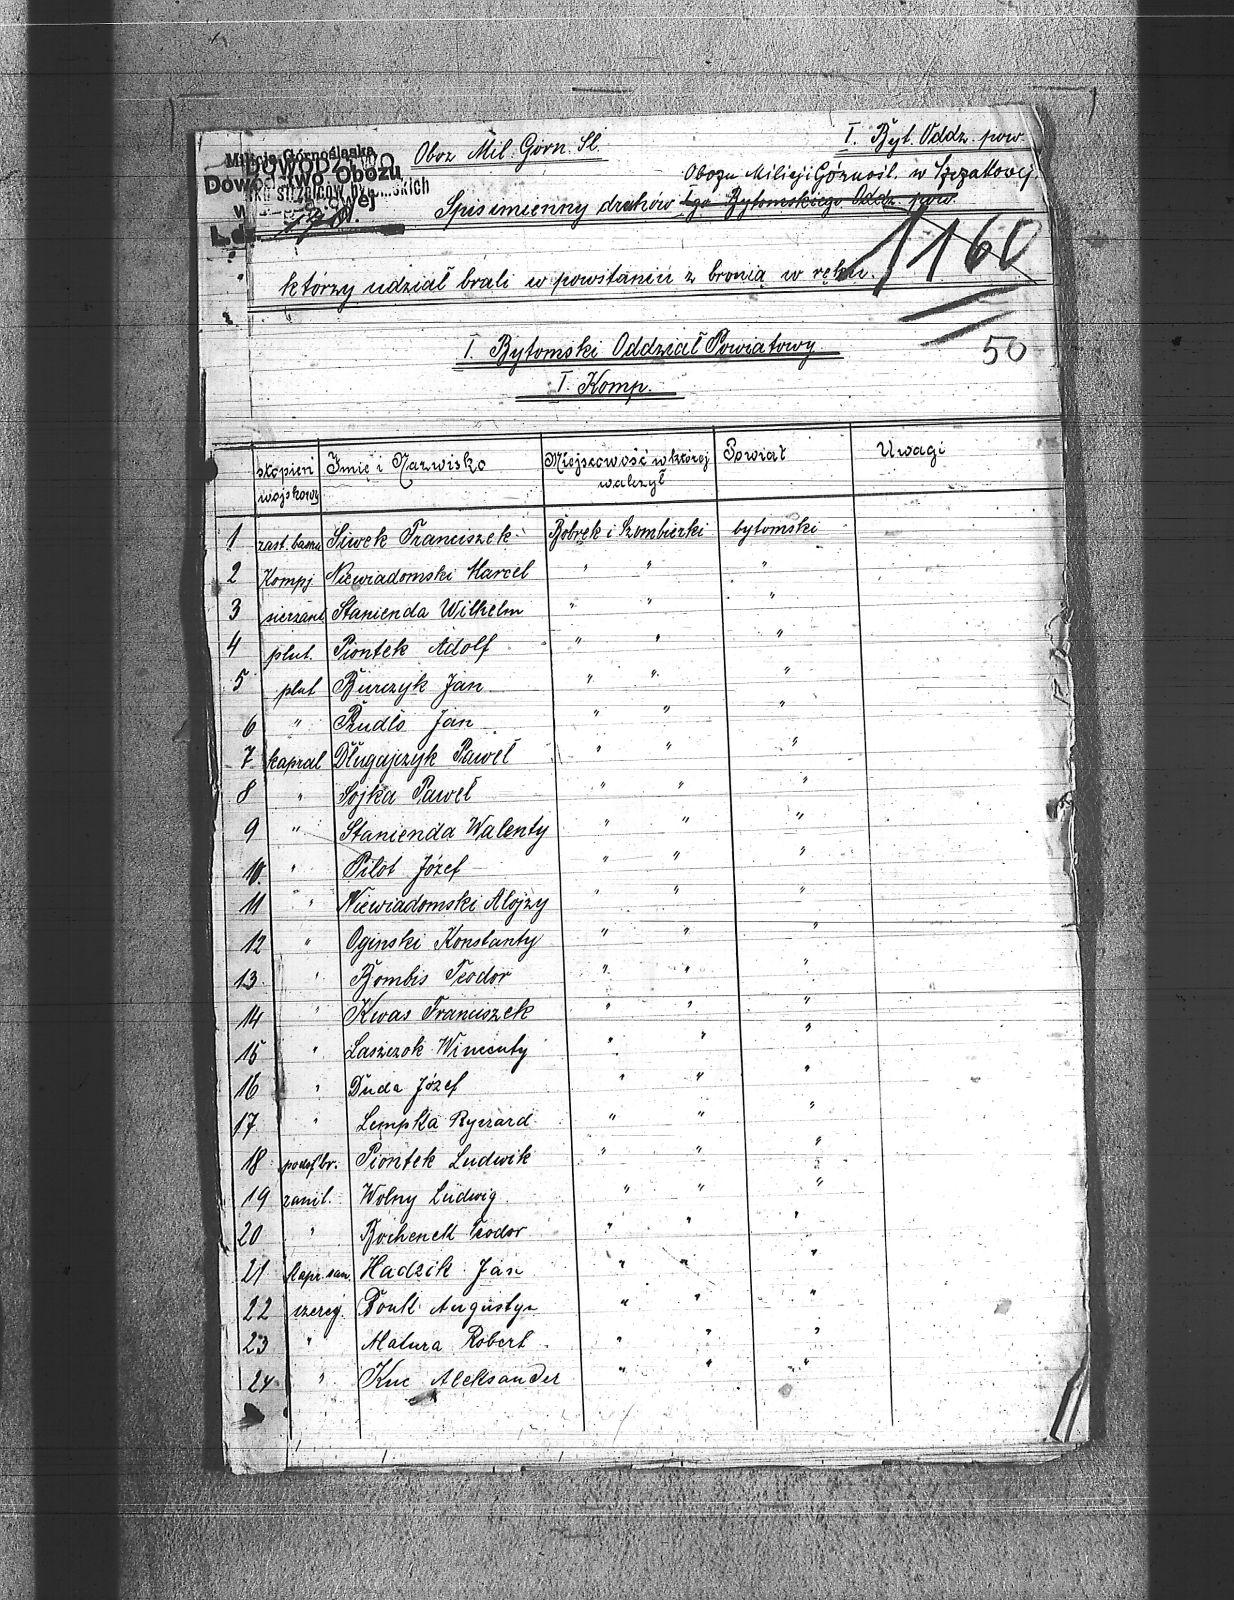 Milicja Górnośląska
DOWÓDZTWO
Dowództwo Obozu
L.dz.
Oboz Mil. Górn. Sl.
I. Byt. Oddz. pow.
Obozu Milicji Górnośl. w
Spis imienny druhów Igo Bytomskiego Oddz. pow.
którzy udział brali w powstaniu z bronią w ręku.
1160
50
I. Bytomski Oddział Powiatowy
I. Komp.
stopień wojskowy Imię i Nazwisko Miejscowość w której walczył Powiat Uwagi
1 zast. Siwek Franciszek Bobrek i Szombierki bytomski
2 Kompj Niewiadomski Marcel " " "
3 sierżant Stanienda Wilhelm " " "
4 plut. Piontek Adolf " " "
5 plut Burczyk Jan " " "
6 " Pudlo Jan " " "
7 kapral Długajczyk Paweł " " "
8 " Sojka Paweł " " "
9 " Stanienda Walenty " " "
10. " Pilot Józef " " "
11 " Niewiadomski Alojzy " " "
12 " Oginski Konstanty " " "
13 " Bombis Teodor " " "
14 " Kwas Franciszek " " "
15 " Laszczok Wincenty " " "
16 " Duda Józef " " "
17 " Lempka Ryszard " " "
18 podof br. Piontek Ludwik " " "
19 sanit. Wolny Ludwig " " "
20 " Bochenek Teodor " " "
21 Kapr. san. Hadzik Jan " " "
22 szereg. Bonk Augustyn " " "
23 " Matura Robert " " "
24 " Kuc Aleksander " " "